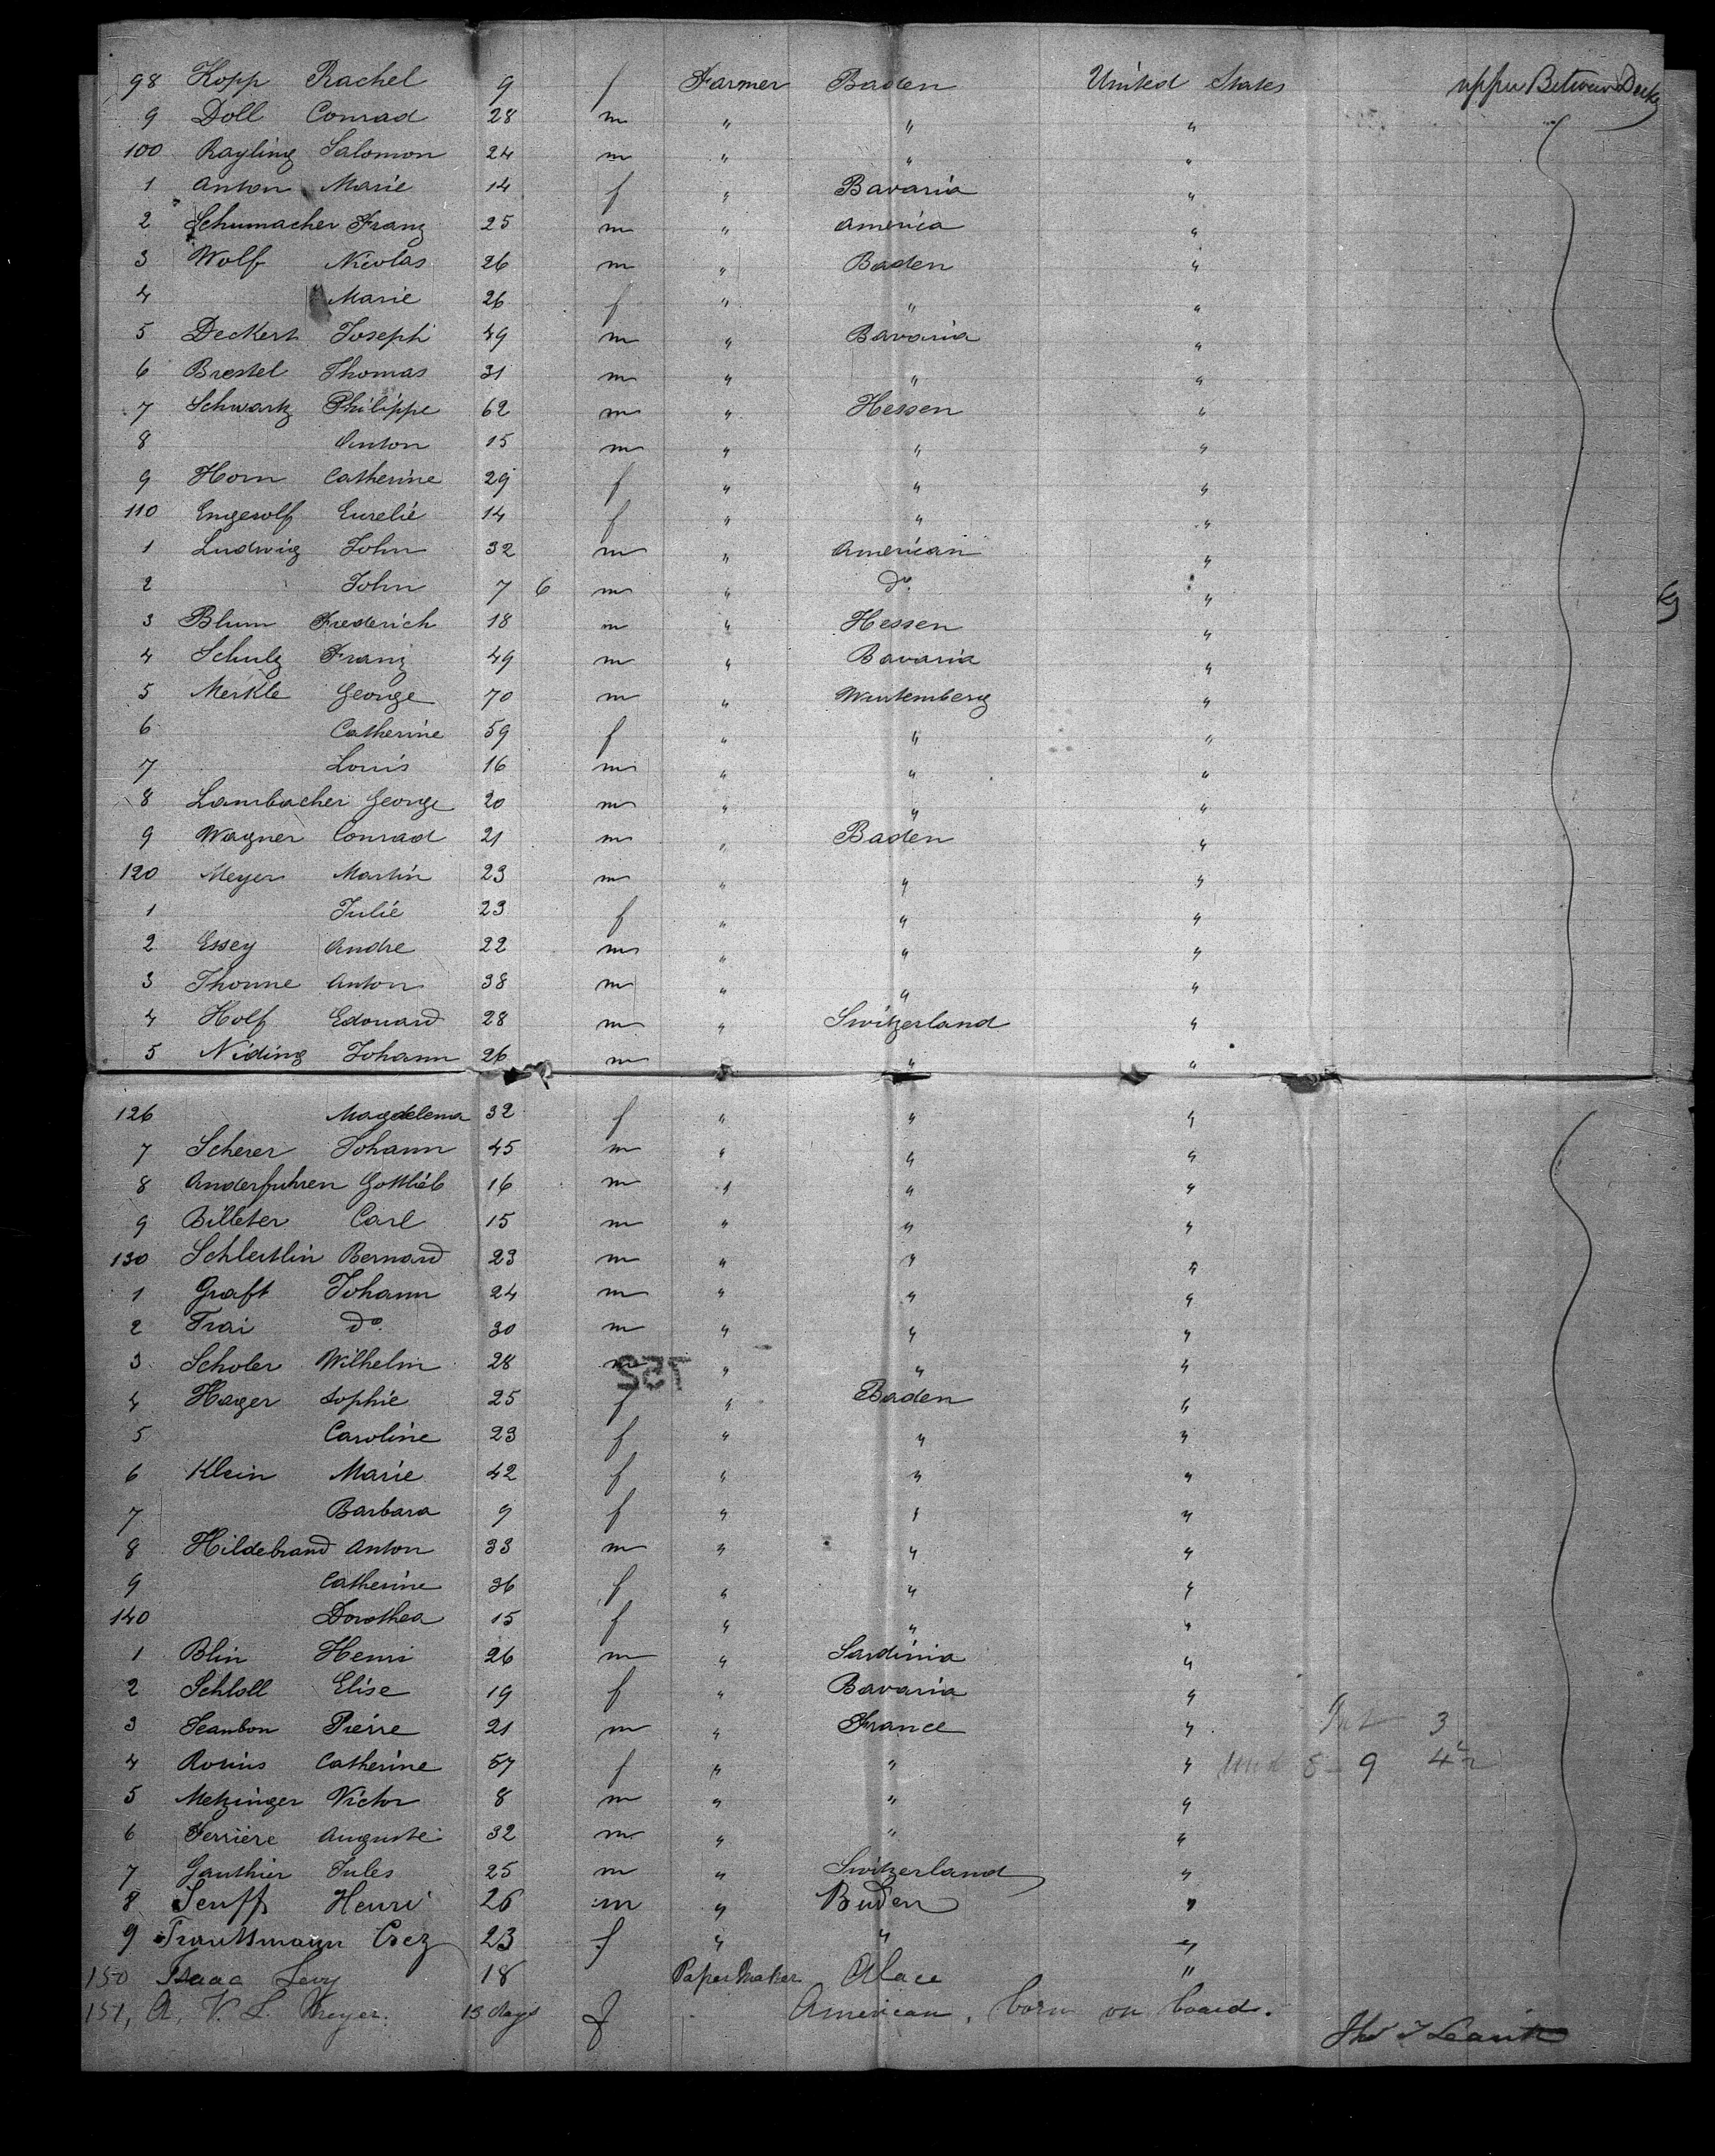 98 Kopp Rachel 9 f Farmer Baden United States upper Between Decks
9 Doll Conrad 28 m " " "
100 Rayling Salomon 24 m " " "
1 Anton Marie 14 f " Bavaria "
2 Schumacher Franz 25 m " America "
3 Wolf Nicolas 26 m " Baden "
4 " Marie 26 f " " "
5 Deckert Joseph 49 m " Bavaria "
6 Brestel Thomas 31 m " " "
7 Schwartz Philippe 62 m " Hessen "
8 Anton 15 m " " "
9 Horn Catherine 29 f " " "
110 Engewolf Eurelie 14 f " " "
1 Ludwig John 32 m " American "
2 John 7 6 m " do. "
3 Blum Frederich 18 m " Hessen "
4 Schulz Franz 49 m " Bavaria "
5 Merkle George 70 m " Wurtemberg "
6 Catherine 59 f " " "
7 Louis 16 m " " "
8 Lambacher George 20 m " " "
9 Wagner Conrad 21 m " Baden "
120 Meyer Martin 23 m " " "
1 Julie 23 f " " "
2 Essey Andre 22 m " " "
3 Thonne Anton 38 m " " "
4 Holf Edouard 28 m " Switzerland "
5 Niding Johann 26 m " " "
126 Magdelena 32 f " " "
7 Scherer Johann 45 m " " "
8 Anderfuhren Gottlieb 16 m " " "
9 Billeter Carl 15 m " " "
130 Schlertlin Bernard 23 m " " "
1 Graft Johann 24 m " " "
2 Frai do. 30 m " " "
3 Scholer Wilhelm 28 m " " "
4 Hager Sophie 25 f " Baden "
5 Caroline 23 f " " "
6 Klein Marie 42 f " " "
7 Barbara 9 f " " "
8 Hildebrand Anton 33 m " " "
9 Catherine 36 f " " "
140 Dorothea 15 f " " "
1 Blin Henri 26 m " Sardinia "
2 Schloll Elise 19 f " Bavaria "
3 Jeanbon Pierre 21 m " France " 3
4 Rovins Catherine 57 f " " " 9 4
5 Metzinger Victor 8 m " " "
6 Ferriere Auguste 32 m " " "
7 Gauthier Jules 25 m " Switzerland "
8 Senff Henri 26 m " Baden "
9 Trauttmann Crez 23 f " " "
150 Isaac Levy 18 Paper Maker Alace "
151, A. V. L. Kreyer. 13 days f American, born on board.